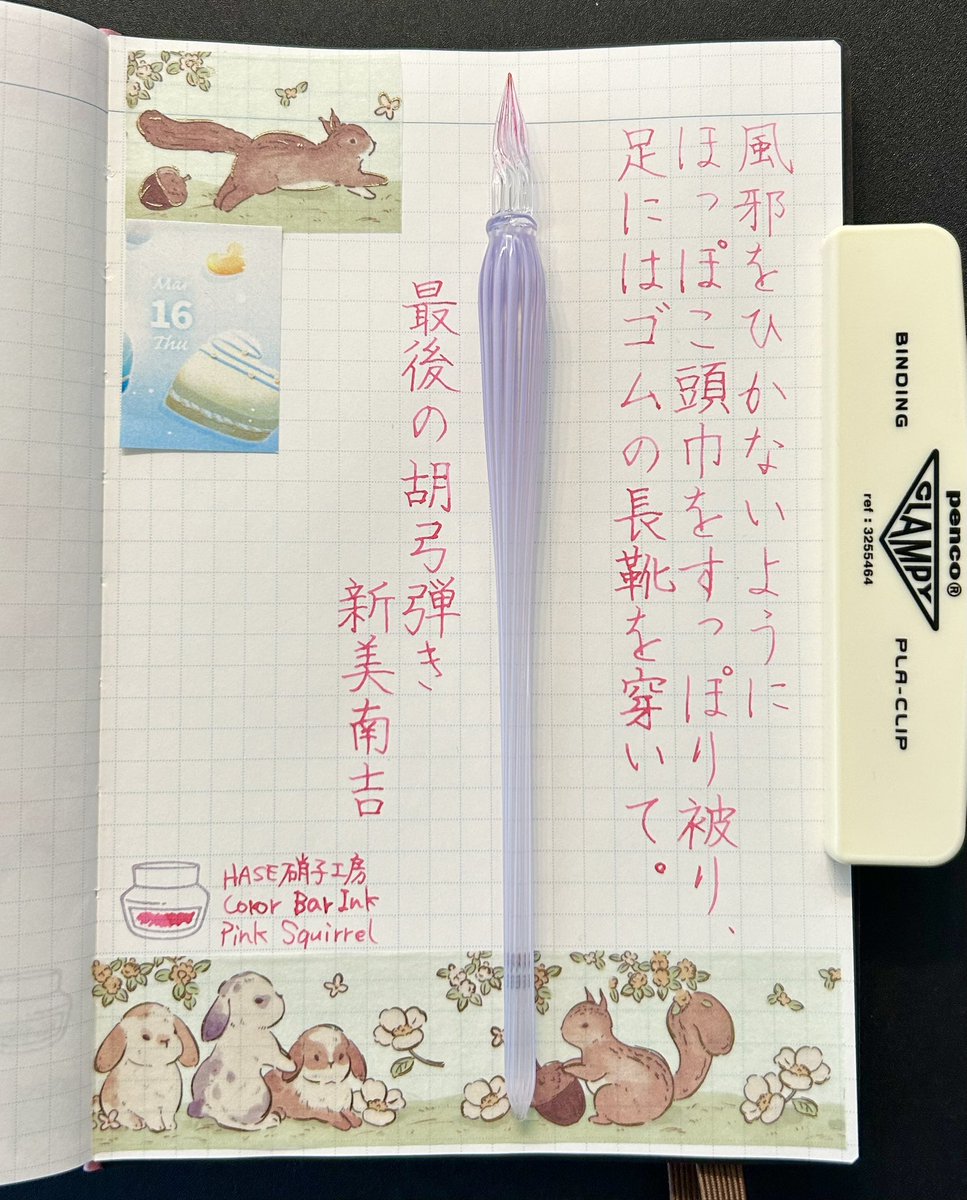 風邪をひかないように
ほっぽこ頭巾をすっぽり被り、
足にはゴムの長靴を穿いて。
最後の胡弓弾き
新美南吉
Mar
16
Thu
HASE硝子工房
Color Bar Ink
Pink Squirrel
BINDING
penco®
CLAMPY
ref : 3255464
PLA-CLIP